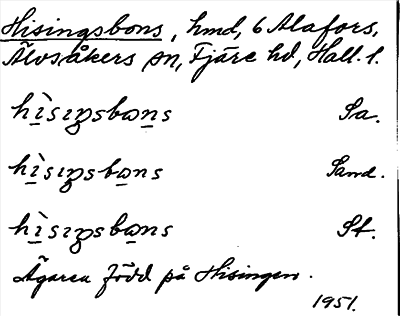 Hisingsbons, hmd, 6 Alafors,
Älvsåkers sn, Fjäre hd, Hall. l.
hìsıŋsbωns Sa.
hìsıŋsbωns Sand.
hìsıŋsbωns St.
Ägaren född på Hisingen.
1951.